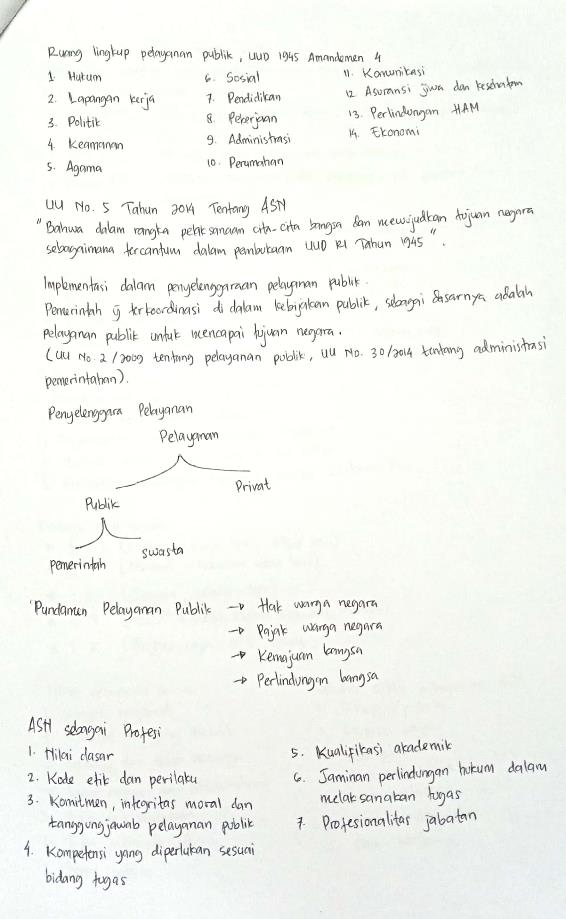 Ruang lingkup pelayanan publik, UUD 1945 Amandemen 4
1. Hukum
2. Lapangan kerja
3. Politik
4. Keamanan
5. Agama
6. Sosial
7. Pendidikan
8. Pekerjaan
9. Administrasi
10. Perumahan
11. Komunikasi
12. Asuransi jiwa dan kesehatan
13. Perlindungan HAM
14. Ekonomi
UU No. 5 Tahun 2014 Tentang ASN
"Bahwa dalam rangka pelaksanaan cita-cita bangsa dan mewujudkan tujuan negara
sebagaimana tercantum dalam pembukaan UUD RI Tahun 1945".
Implementasi dalam penyelenggaraan pelayanan publik.
Pemerintah yg terkoordinasi di dalam kebijakan publik, sebagai dasarnya adalah
pelayanan publik untuk mencapai tujuan negara.
(UU No. 2/2009 tentang pelayanan publik, UU No. 30/2014 tentang administrasi
pemerintahan).
Penyelenggara Pelayanan
Pelayanan
Publik
Privat
pemerintah
swasta
Pundamen Pelayanan Publik → Hak warga negara
→ Pajak warga negara
→ Kemajuan bangsa
→ Perlindungan bangsa
ASN sebagai Profesi
1. Nilai dasar
2. Kode etik dan perilaku
3. Komitmen, integritas moral dan
tanggungjawab pelayanan publik
4. Kompetensi yang diperlukan sesuai
bidang tugas
5. Kualifikasi akademik
6. Jaminan perlindungan hukum dalam
melaksanakan tugas
7. Profesionalitas jabatan